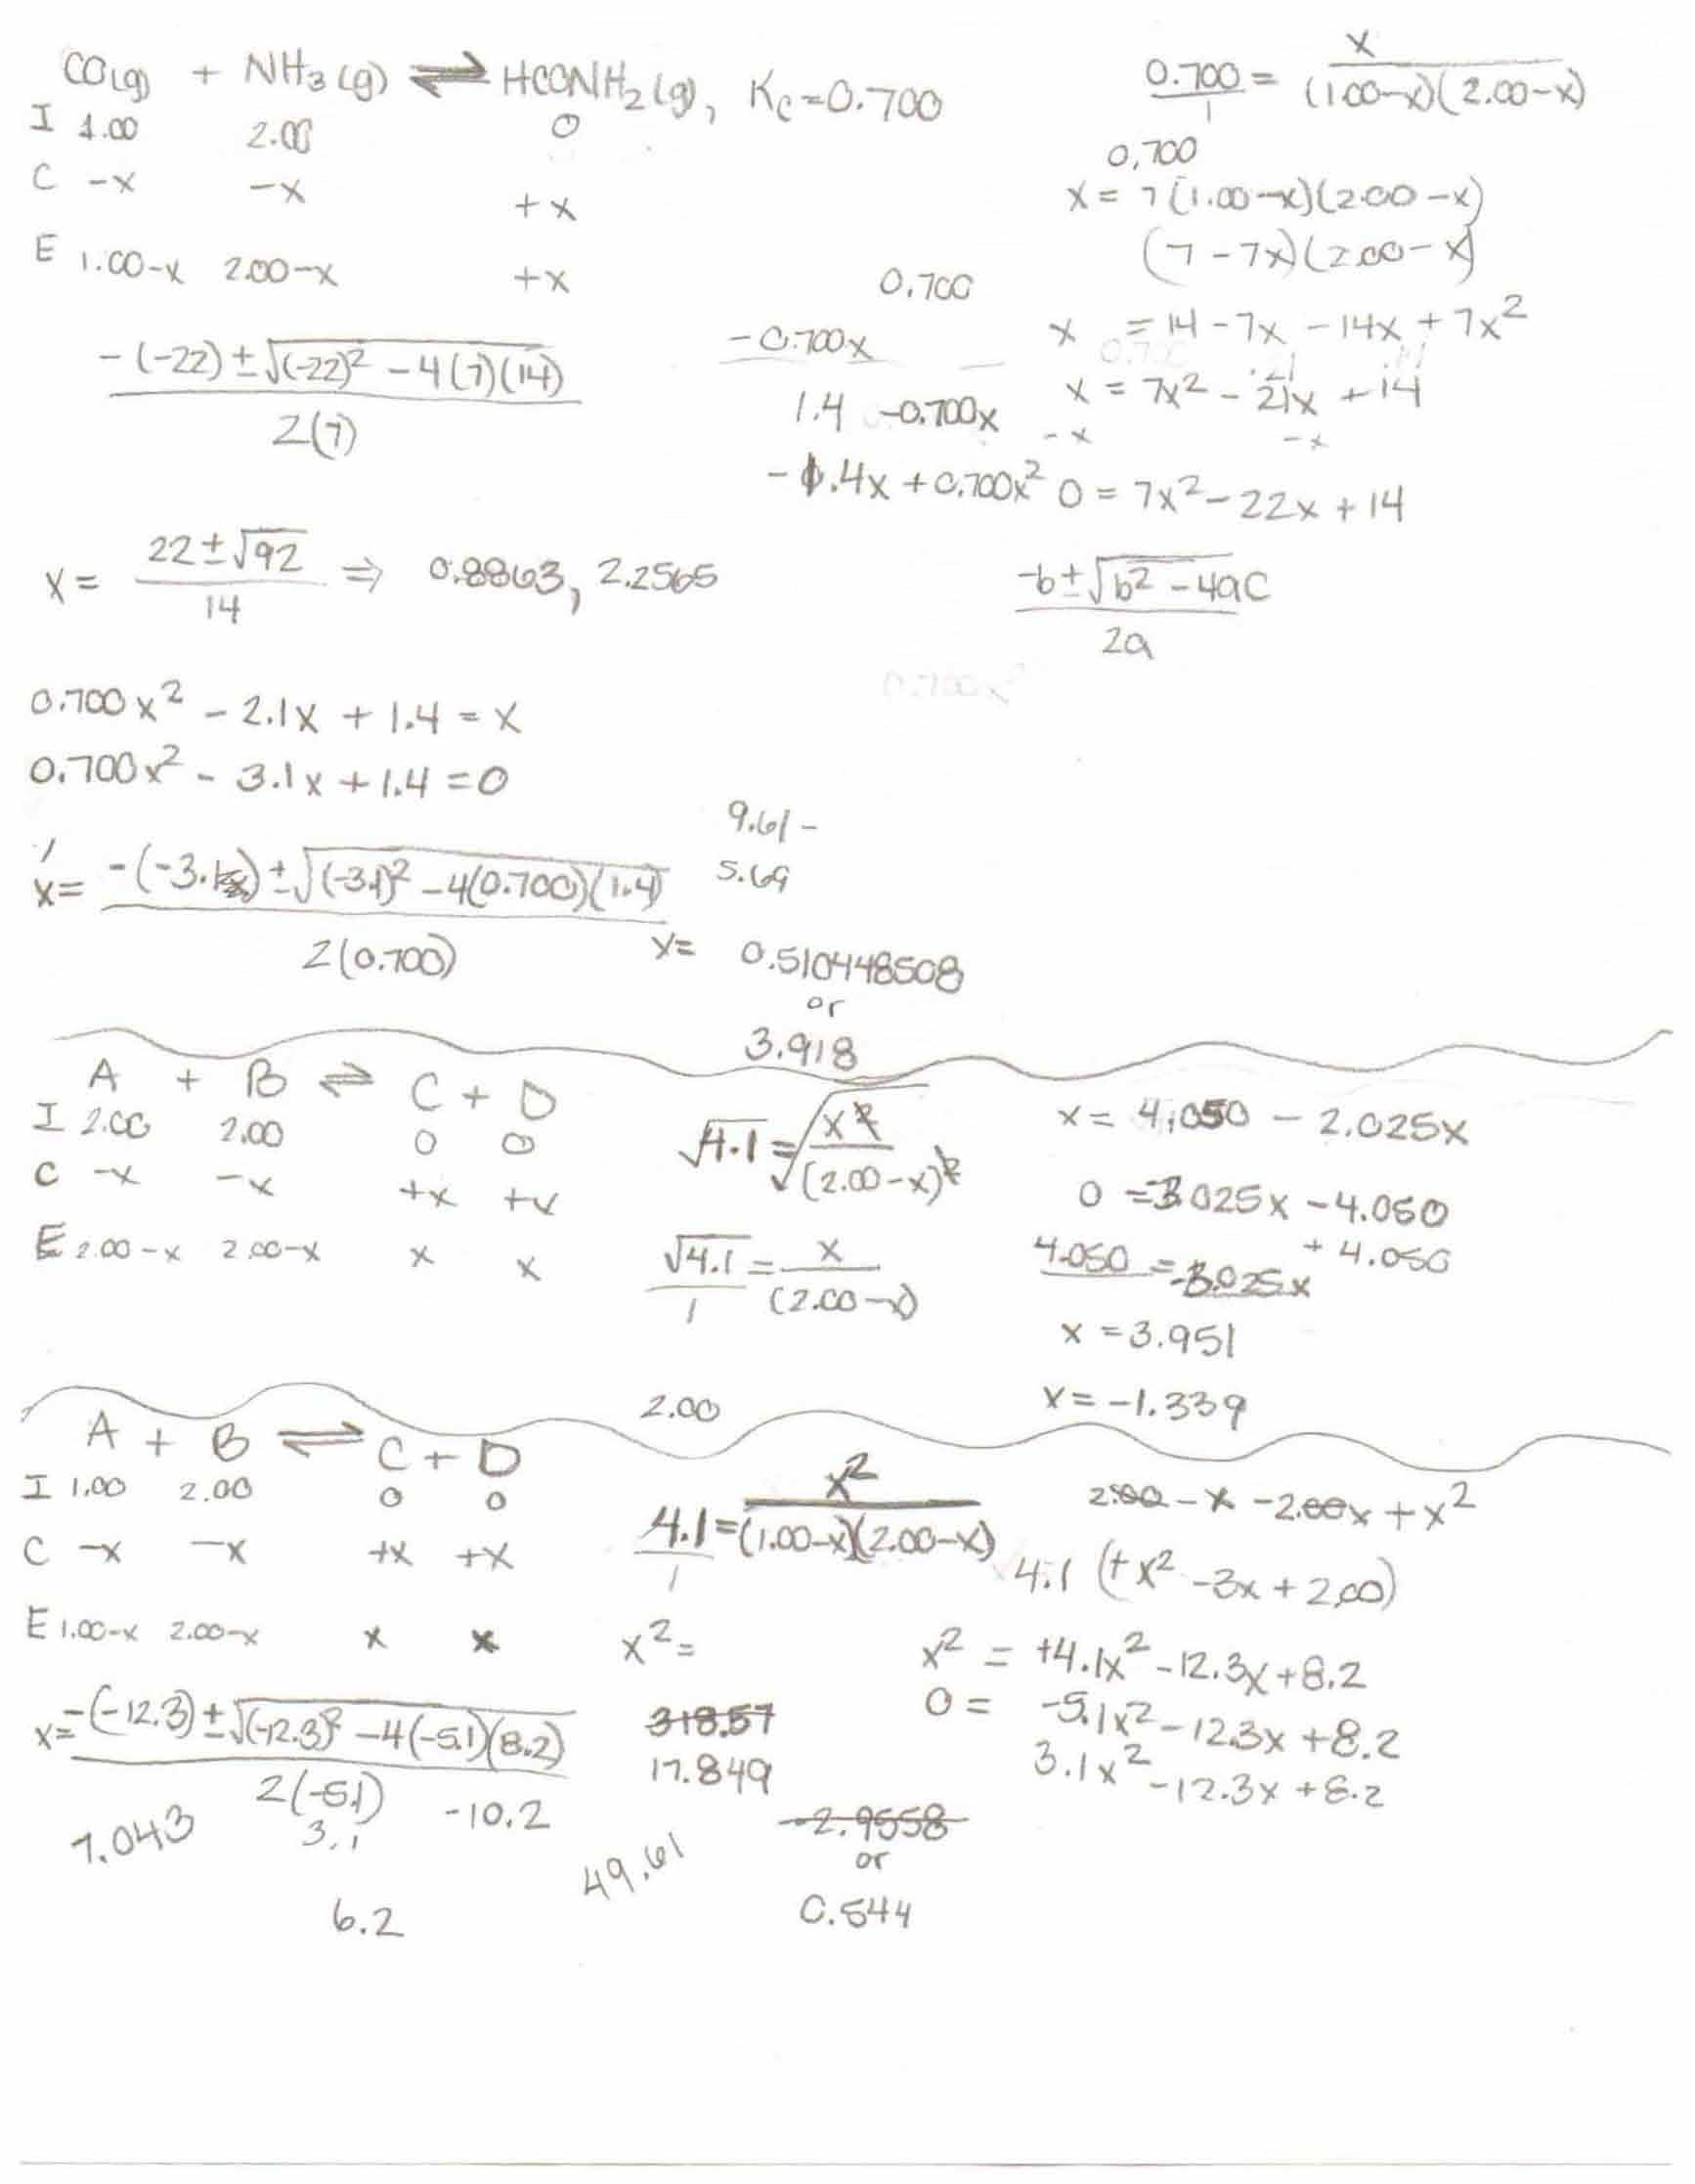 CO(g) + NH₃(g) ⇌ HCONH₂(g), Kc=0.700
I 1.00 2.00 0
C -x -x +x
E 1.00-x 2.00-x +x
0.700/1 = x/((1.00-x)(2.00-x))
0.700
x = 7(1.00-x)(2.00-x)
(7-7x)(2.00-x)
x = 14-7x-14x+7x²
x = 7x²-21x+14
-x -x
0 = 7x²-22x+14
(-b±√(b²-4ac))/2a
0.700
-0.700x
1.4 -0.700x
-1.4x+0.700x²
(-(-22)±√((-22)²-4(7)(14)))/2(7)
x = (22±√92)/14 ⇒ 0.8863, 2.2565
0.700x² - 2.1x + 1.4 = x
0.700x² - 3.1x + 1.4 = 0
x = (-(-3.1)±√((-3.1)²-4(0.700)(1.4)))/2(0.700)
9.61 -
5.69
x = 0.510448508
or
3.918
A + B ⇌ C + D
I 2.00 2.00 0 0
C -x -x +x +x
E 2.00-x 2.00-x x x
√4.1 = √(x²/(2.00-x)²)
√4.1/1 = x/(2.00-x)
x = 4.050 - 2.025x
0 = 3.025x - 4.050
+ 4.050
4.050 = -3.025x
x = 3.951
x = -1.339
2.00
A + B ⇌ C + D
I 1.00 2.00 0 0
C -x -x +x +x
E 1.00-x 2.00-x x x
4.1/1 = x²/((1.00-x)(2.00-x))
x² =
2.00 - x - 2.00x + x²
4.1(+x² - 3x + 2.00)
x² = +4.1x² - 12.3x + 8.2
0 = -5.1x² - 12.3x + 8.2
3.1x² - 12.3x + 8.2
x = (-(-12.3)±√((-12.3)²-4(-5.1)(8.2)))/2(-5.1)
3.1
-10.2
7.043
6.2
318.57
17.849
49.61
-2.9558
or
0.544